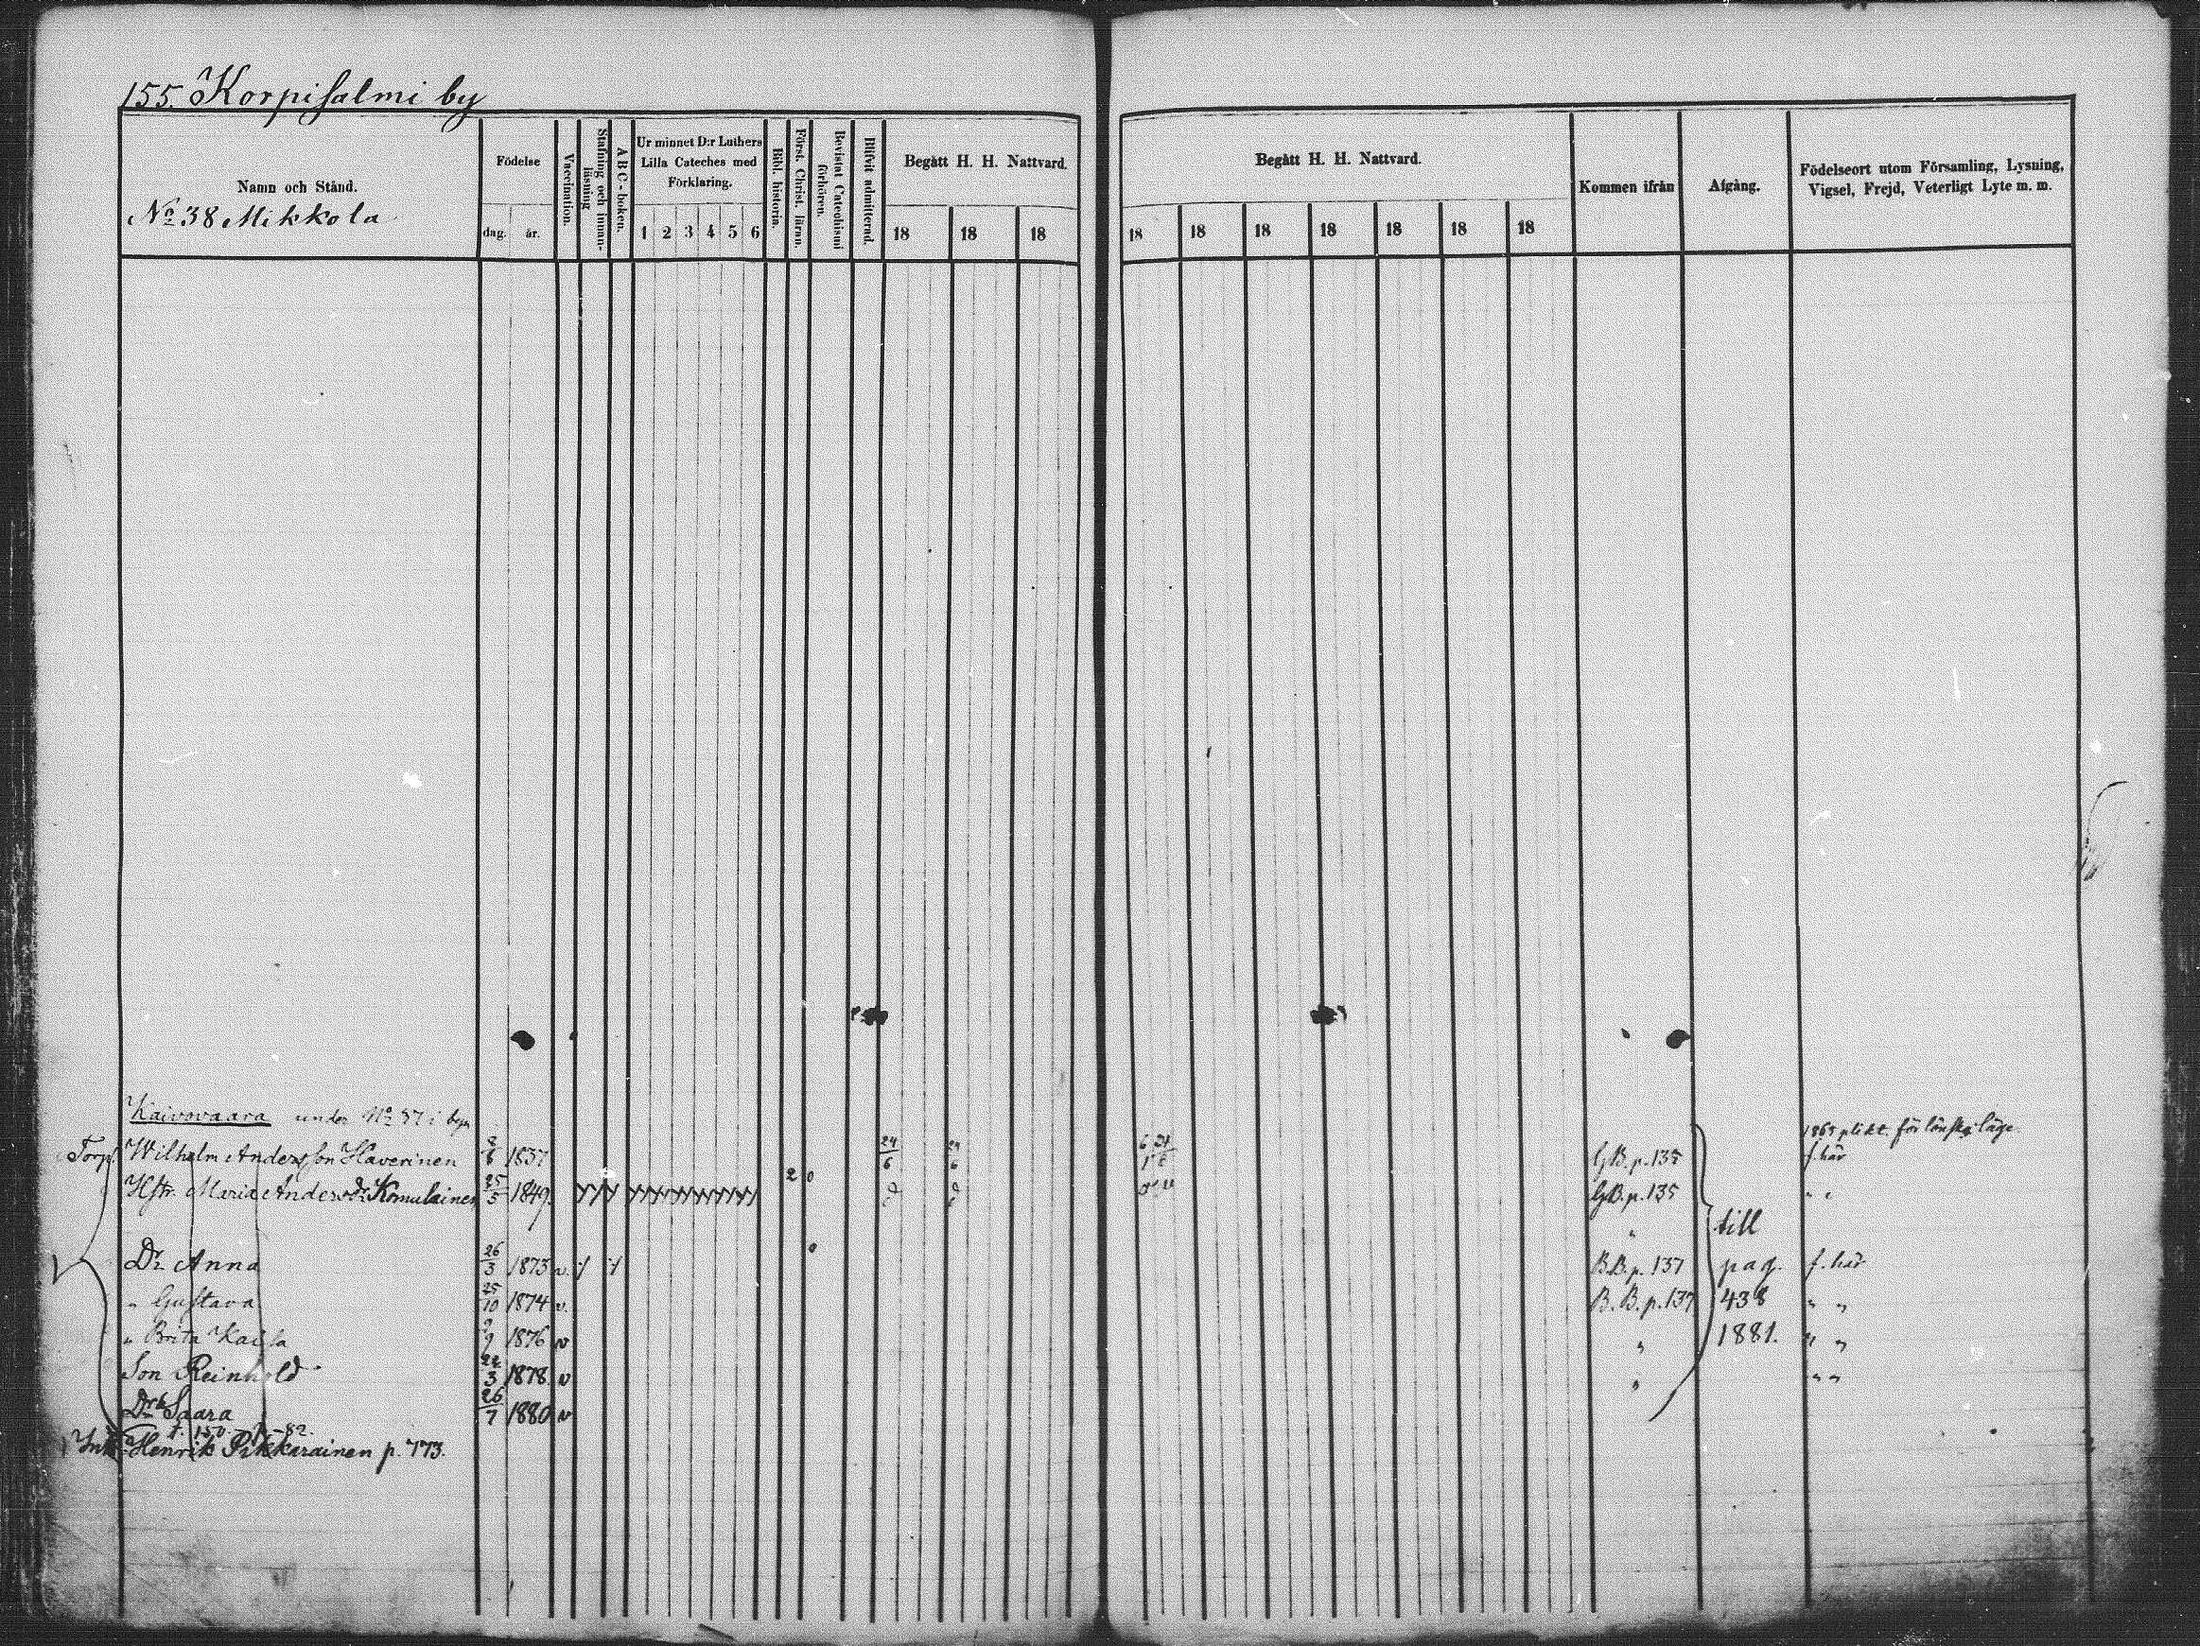 155. Korpisalmi by
Namn och Stånd.
No 38 Mikkola
Födelse
dag. år.
Vaccination.
Stafning och innan-
läsning
A B C - boken.
Ur minnet D:r Luthers
Lilla Cateches med
Förklaring.
1 2 3 4 5 6
Bibl. historia.
Först. Christ. läran.
Bevistat Catechismi
förhören.
Blifvit admitterad.
Begått H. H. Nattvard.
18 18 18
Begått H. H. Nattvard.
18 18 18 18 18 18 18
Kommen ifrån
Afgång.
Födelseort utom Församling, Lysning,
Vigsel, Frejd, Veterligt Lyte m. m.
Kaivovaara under No 37 i byn
1865 plikt. för lönsk. läge.
Torp. Wilhelm Andersson Haverinen 8/8 1837 24/6 24/6 G.B. p. 135 f. här
Hstr. Maria Andersdr Komulainen 25/5 1849. 2 0 G.B. p. 135 " "
" till
Dr. Anna 26/3 1873 v. B.B. p. 137 pag. f. här
" Gustava 25/10 1874 v. B. B. p. 137 438 " "
" Brita Kaisa 9/9 1876 v " 1881. " "
Son Reinhold 22/3 1878. v " " "
Dr. Saara 26/7 1880 v
Inh. Henrik Pikkarainen p. 773.